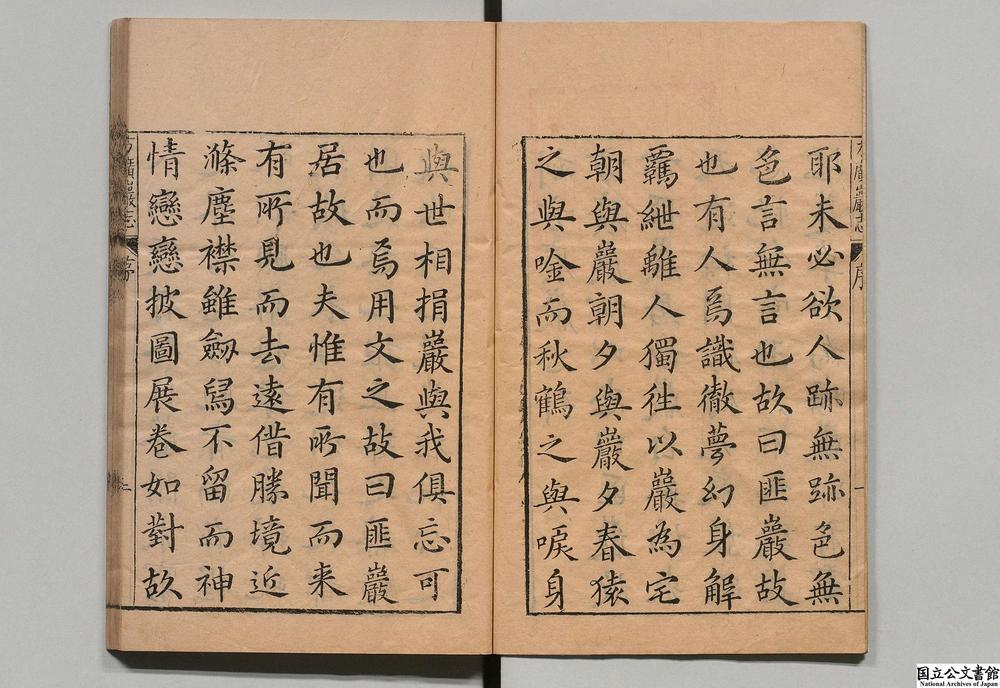 耶未必欲人跡無跡色無
色言無言也故曰匪巖故
也有人焉識徹夢幻身解
羈絏離人獨徃以巖為宅
朝與巖朝夕與巖夕春猿
之與唫而秋鶴之與唳身
與世相捐巖與我俱忘可
也而焉用文之故曰匪巖
居故也夫惟有所聞而来
有所見而去遠借勝境近
滌塵襟雖劔舄不留而神
情戀戀披圖展卷如對故
方廣巖志
序
一
方廣巖志
序
二
国立公文書館
National Archives of Japan